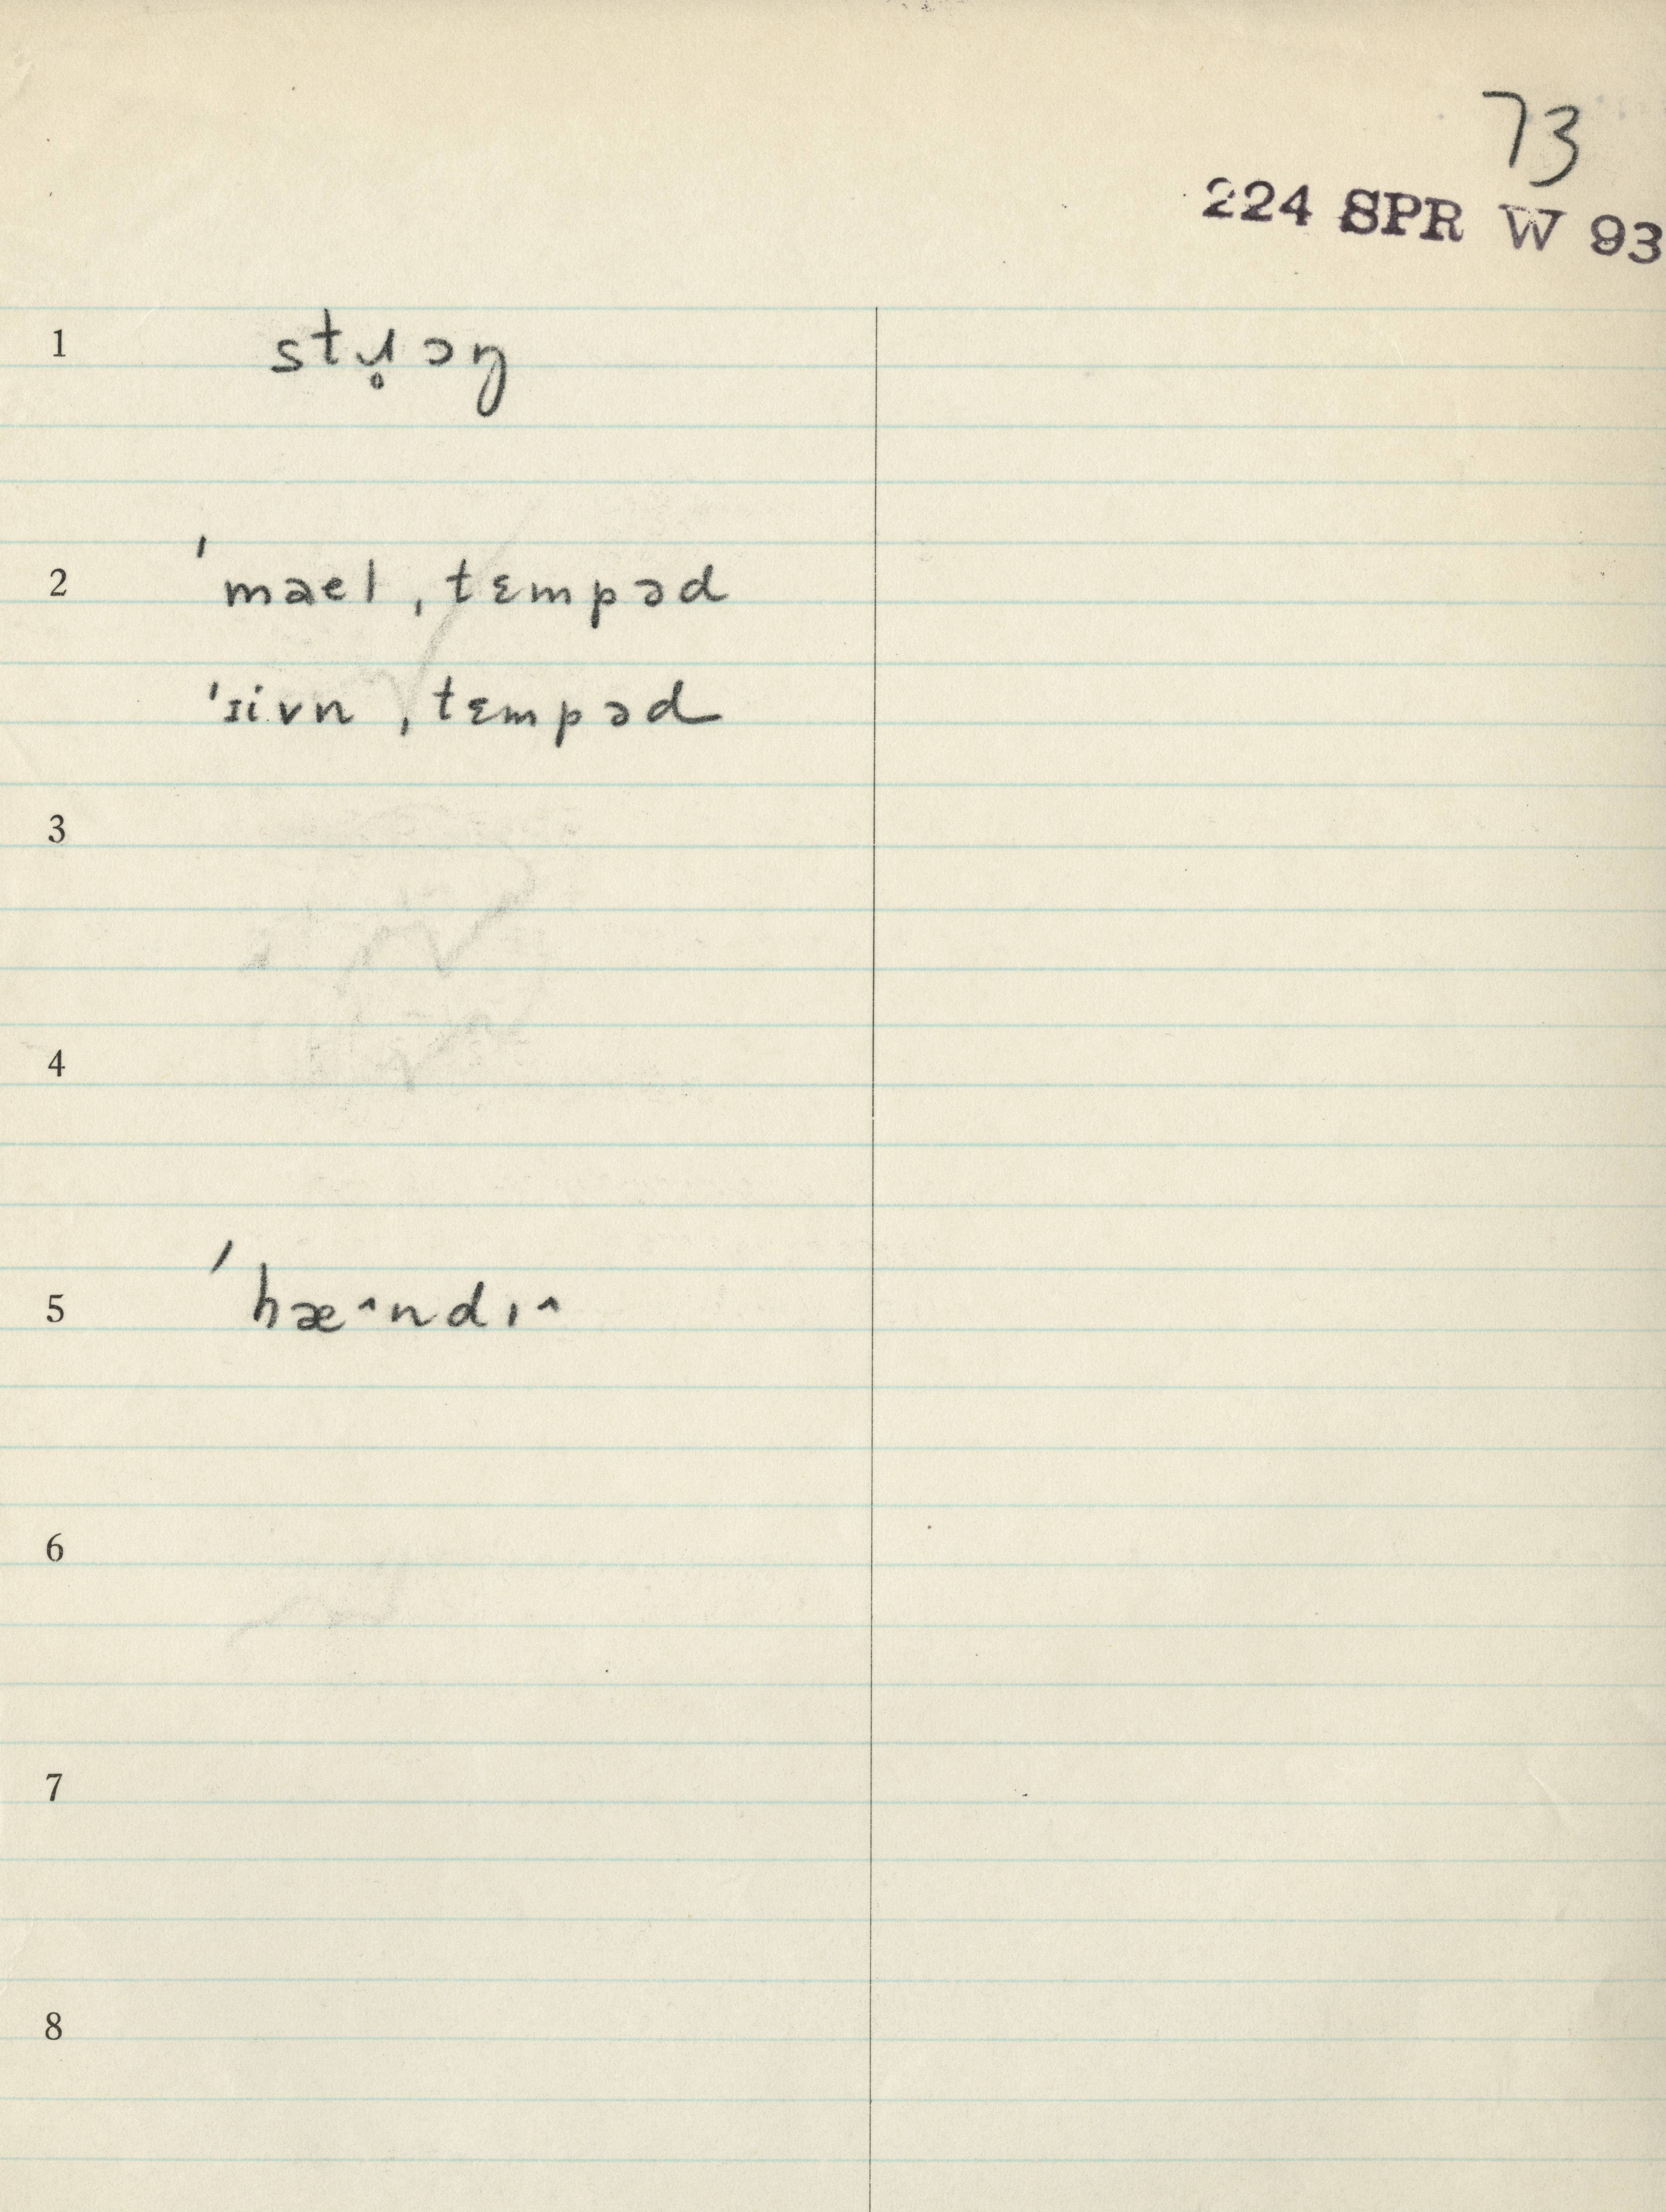 73
224 SPR W 93
1 stɹ̥ɔŋ
2 ˈmael ˌtɛmpəd
ˈɪivn ˌtɛmpəd
3
4
5 ˈhæ^ndɪ^
6
7
8